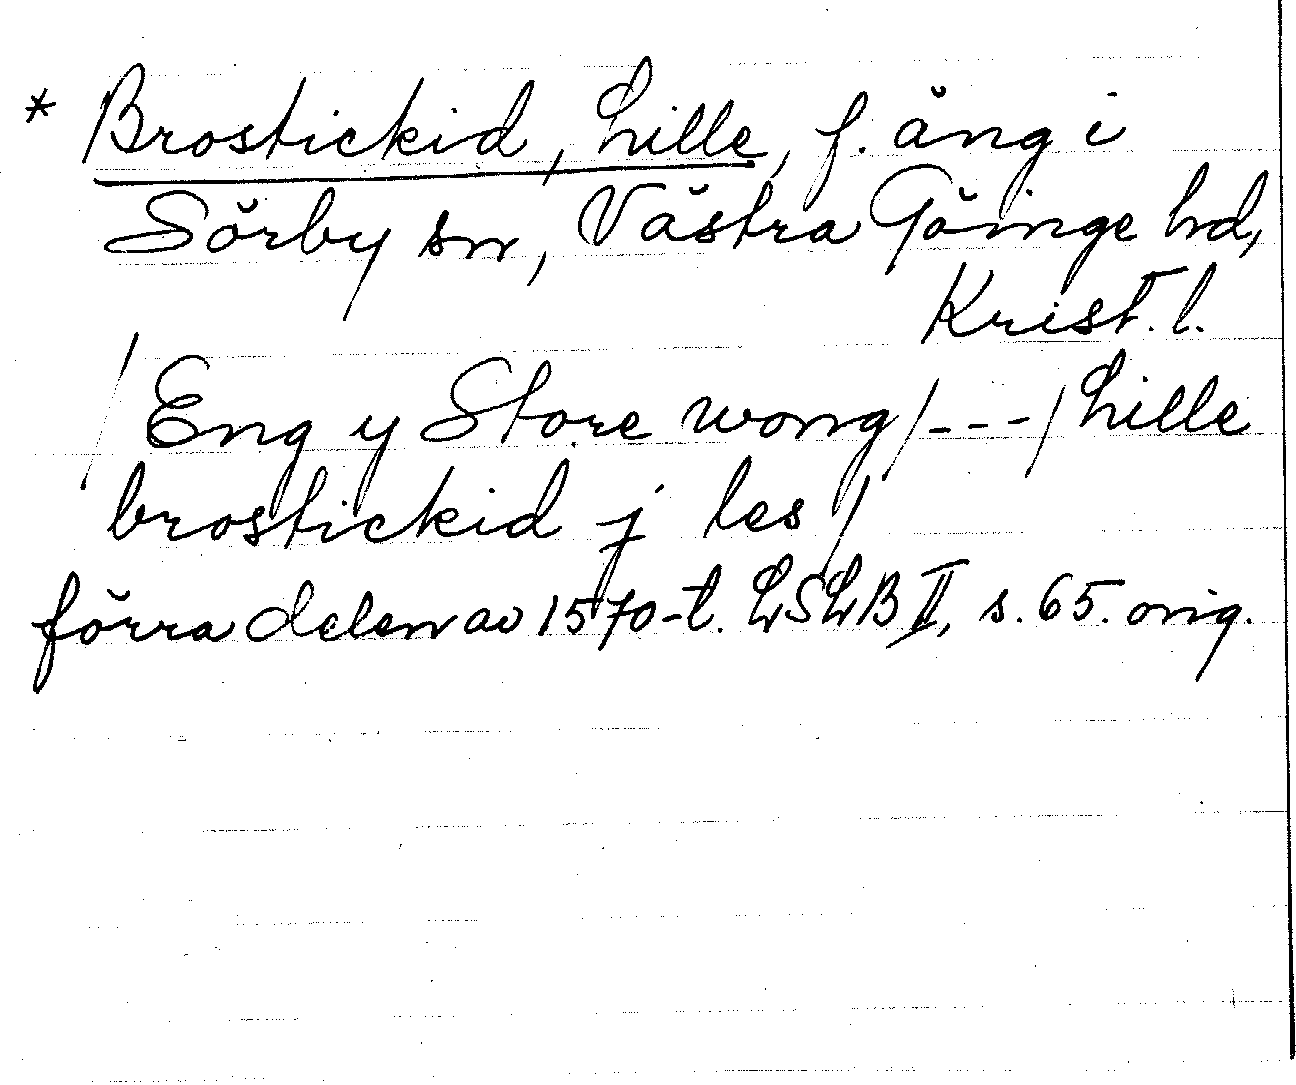 * Brostickid, Lille, f. äng i
Sörby sn, Västra Göinge hd,
Krist. l.
/Eng y Store wong/---/Lille
brostickid j les/
förra delen av 1570-t. LSLB II, s. 65. orig.